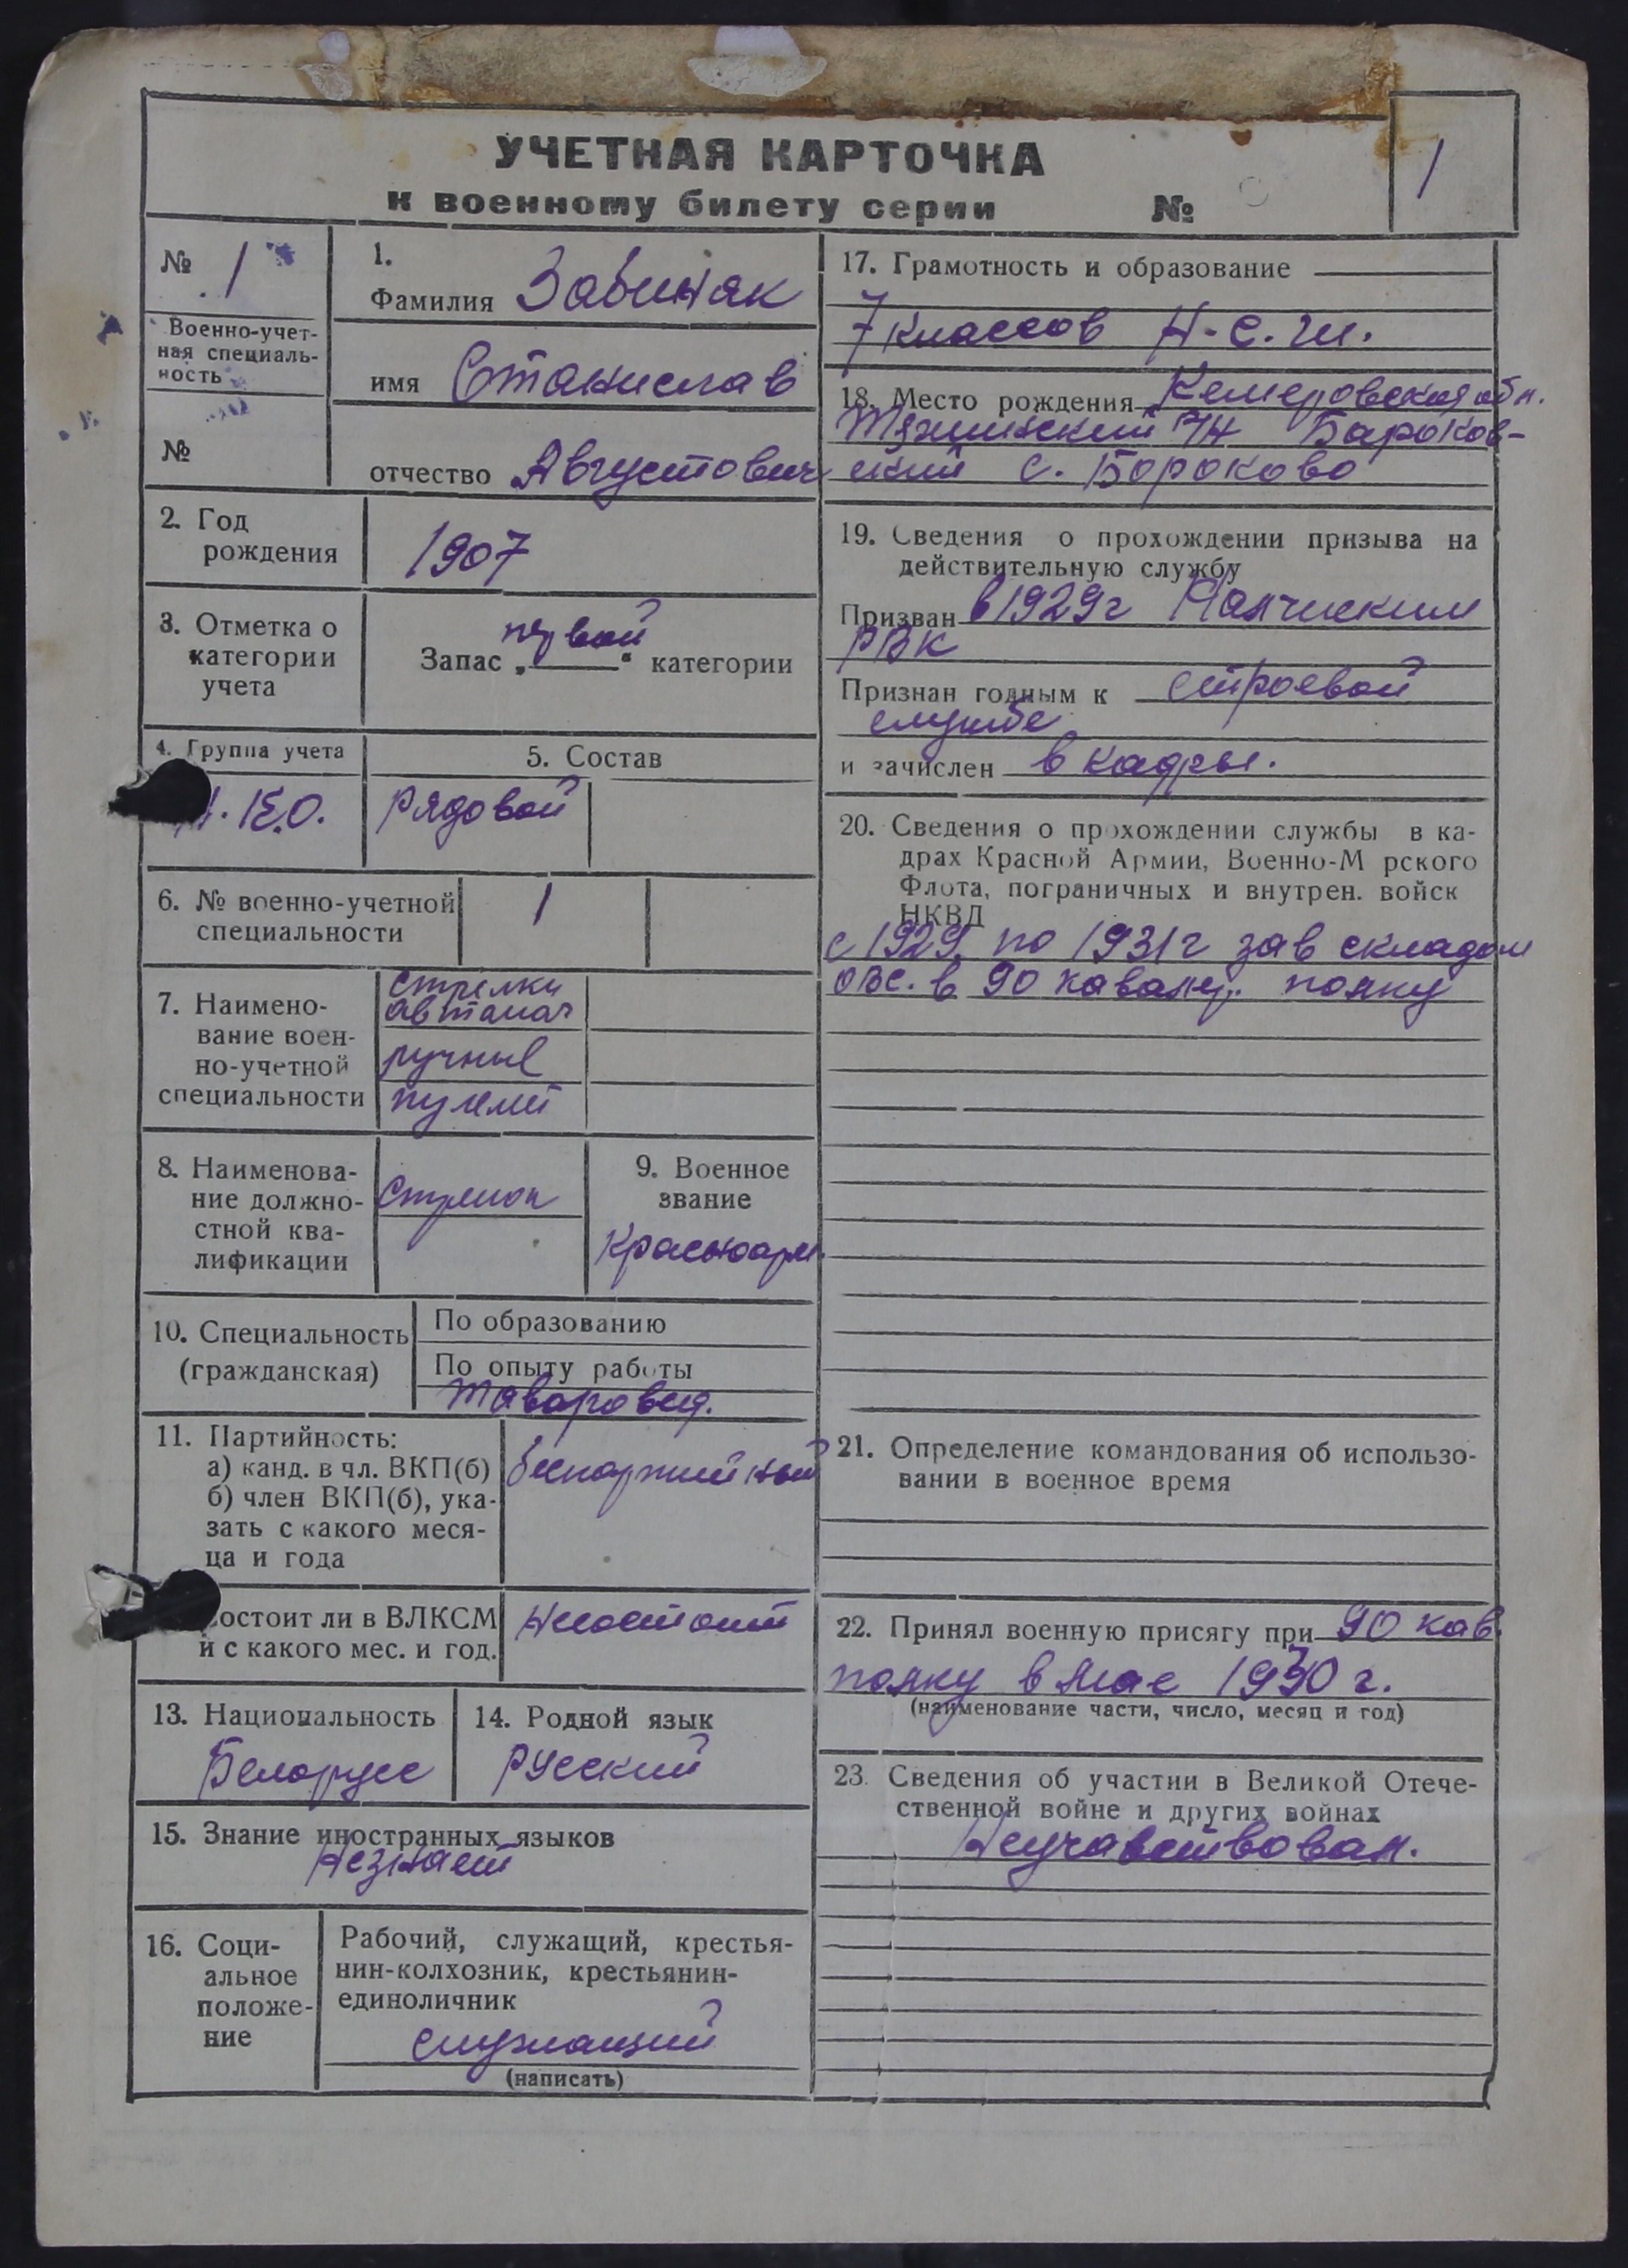 УЧЕТНАЯ КАРТОЧКА
к военному билету серии №
1
№ 1
Военно-учет-
ная специаль-
ность
№
1.
Фамилия Забиняк
имя Станислав
отчество Августович
2. Год
рождения
1907
3. Отметка о
категории
учета
Запас „первой“ категории
4. Группа учета
5. Состав
Рядовой
6. № военно-учетной
специальности
1
7. Наимено-
вание воен-
но-учетной
специальности
стрелки
автомат
ручные
пулемет
8. Наименова-
ние должно-
стной ква-
лификации
Стрелок
9. Военное
звание
Красноарм.
10. Специальность
(гражданская)
По образованию
По опыту работы
таваровед.
11. Партийность:
а) канд. в чл. ВКП(б)
б) член ВКП(б), ука-
зать с какого меся-
ца и года
беспартийный
состоит ли в ВЛКСМ
и с какого мес. и год.
Несостоит
13. Национальность
Белорусс
14. Родной язык
Русский
15. Знание иностранных языков
Незнает
16. Соци-
альное
положе-
ние
Рабочий, служащий, крестья-
нин-колхозник, крестьянин-
единоличник
служащий
(написать)
17. Грамотность и образование
7 классов Н-С.Ш.
18. Место рождения Кемеровская обл.
Тяжинский р/н Бароков-
ский с. Бороково
19. Сведения о прохождении призыва на
действительную службу
Призван в 1929г
РВК
Признан годным к строевой
службе
и зачислен в кадры.
20. Сведения о прохождении службы в ка-
драх Красной Армии, Военно-М рского
Флота, пограничных и внутрен. войск
НКВД
с 1929 по 1931г зав складом
ОВС. в 90 кавалер. полку
21. Определение командования об использо-
вании в военное время
22. Принял военную присягу при 90 кав.
полку в мае 1930 г.
(наименование части, число, месяц и год)
23. Сведения об участии в Великой Отече-
ственной войне и других войнах
Неучавствовал.